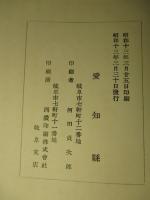 昭和十三年三月廿五日印刷
昭和十三年三月三十日發行
愛知縣
岐阜市七軒町十二番地
印刷者 河田貞次郎
岐阜市七軒町十二番地
印刷所 西濃印刷株式會社
岐阜支店